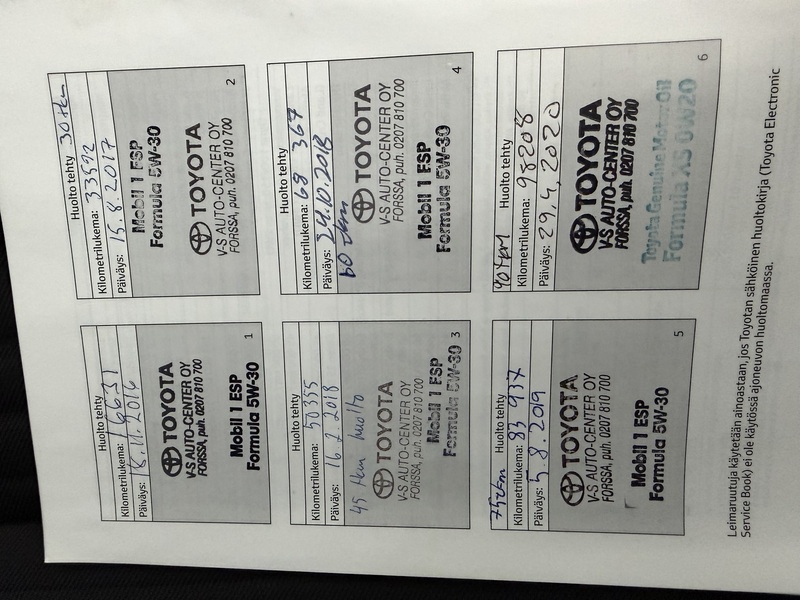 Huolto tehty
Kilometrilukema: 16631
Päiväys: 18.11.2016
TOYOTA
V-S AUTO-CENTER OY
FORSSA, puh. 0207 810 700
Mobil 1 ESP
Formula 5W-30
1
Huolto tehty 30 tkm
Kilometrilukema: 33592
Päiväys: 15.8.2017
Mobil 1 ESP
Formula 5W-30
TOYOTA
V-S AUTO-CENTER OY
FORSSA, puh. 0207 810 700
2
Huolto tehty
Kilometrilukema: 50355
Päiväys: 16.2.2018
45 tkm huolto
TOYOTA
V-S AUTO-CENTER OY
FORSSA, puh. 0207 810 700
Mobil 1 ESP
Formula 5W-30
3
Huolto tehty
Kilometrilukema: 68 367
Päiväys: 24.10.2018
60 tkm
TOYOTA
V-S AUTO-CENTER OY
FORSSA, puh. 0207 810 700
Mobil 1 ESP
Formula 5W-30
4
75tkm Huolto tehty
Kilometrilukema: 83 937
Päiväys: 5.8.2019
TOYOTA
V-S AUTO-CENTER OY
FORSSA, puh. 0207 810 700
Mobil 1 ESP
Formula 5W-30
5
90tkm Huolto tehty
Kilometrilukema: 98208
Päiväys: 29.4.2020
TOYOTA
V-S AUTO-CENTER OY
FORSSA, puh. 0207 810 700
Toyota Genuine Motor Oil
Formula XS 0W20
6
Leimaruutuja käytetään ainoastaan, jos Toyotan sähköinen huoltokirja (Toyota Electronic
Service Book) ei ole käytössä ajoneuvon huoltomaassa.